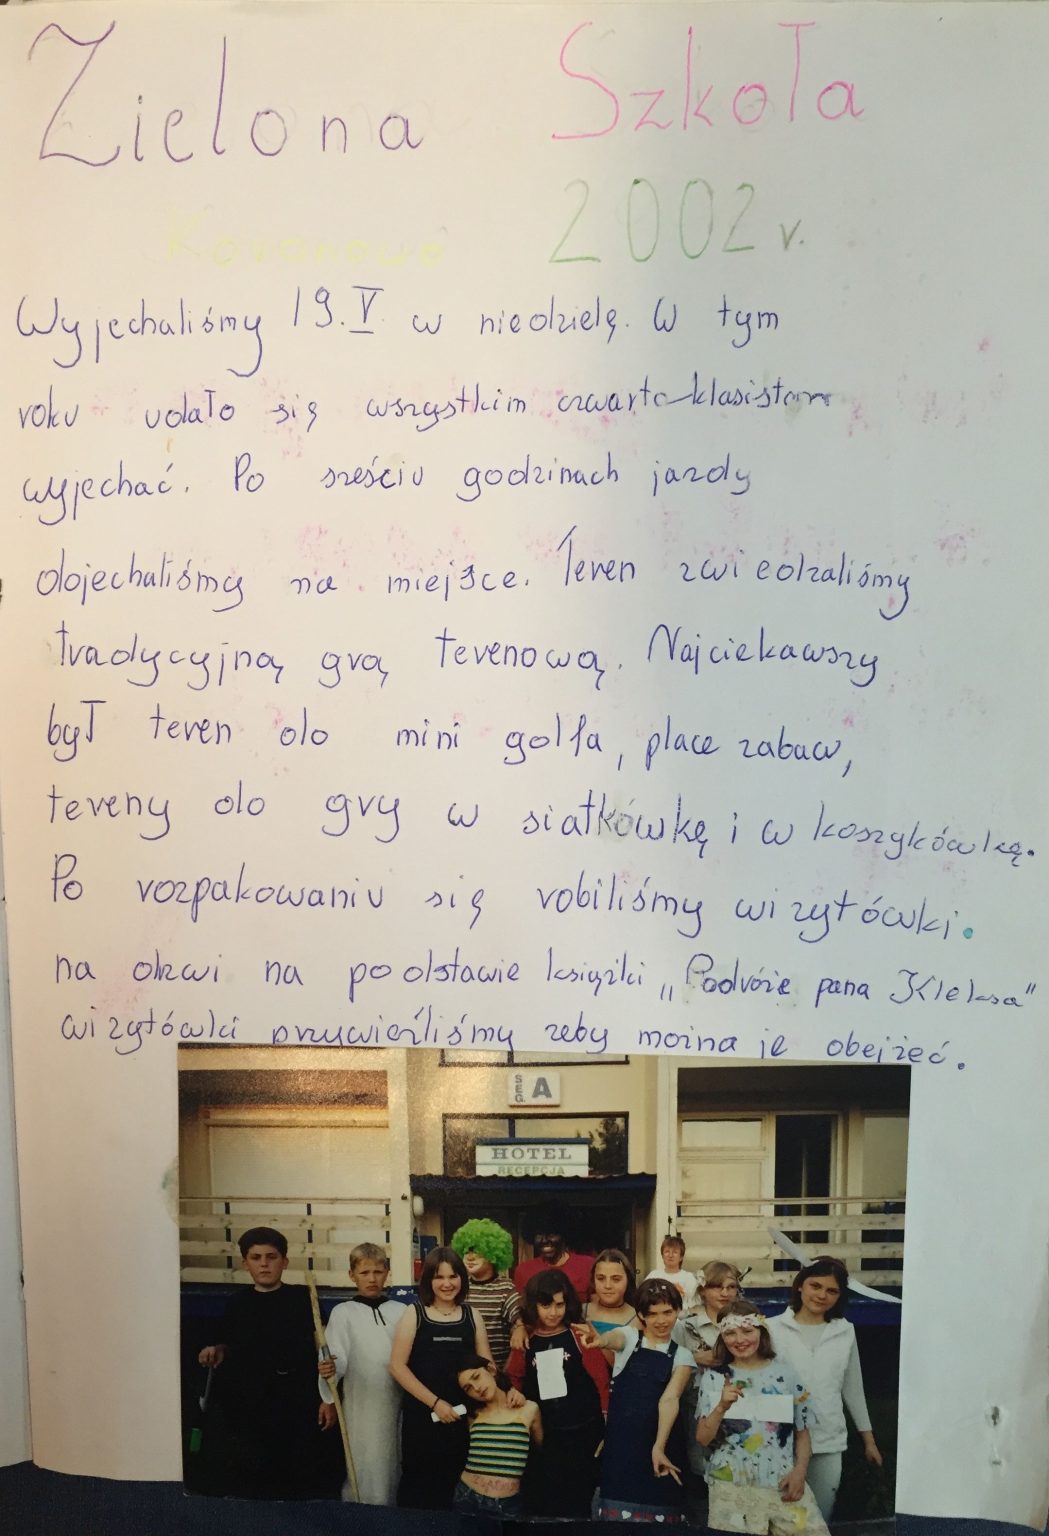 Zielona Szkoła
2002 r.
Wyjechaliśmy 19.V. w niedzielę. W tym
roku udało się wszystkim czwarto-klasistom
wyjechać. Po sześciu godzinach jazdy
dojechaliśmy na miejsce. Teren zwiedzaliśmy
tradycyjną grą terenową. Najciekawszy
był teren do mini golfa, place zabaw,
tereny do gry w siatkówkę i w koszykówkę.
Po rozpakowaniu się robiliśmy wizytówki.
na drzwi na podstawie książki „Podróże pana Kleksa"
wizytówki przywieźliśmy zeby mozna je obejżeć.
SEG. A
HOTEL
RECEPCJA